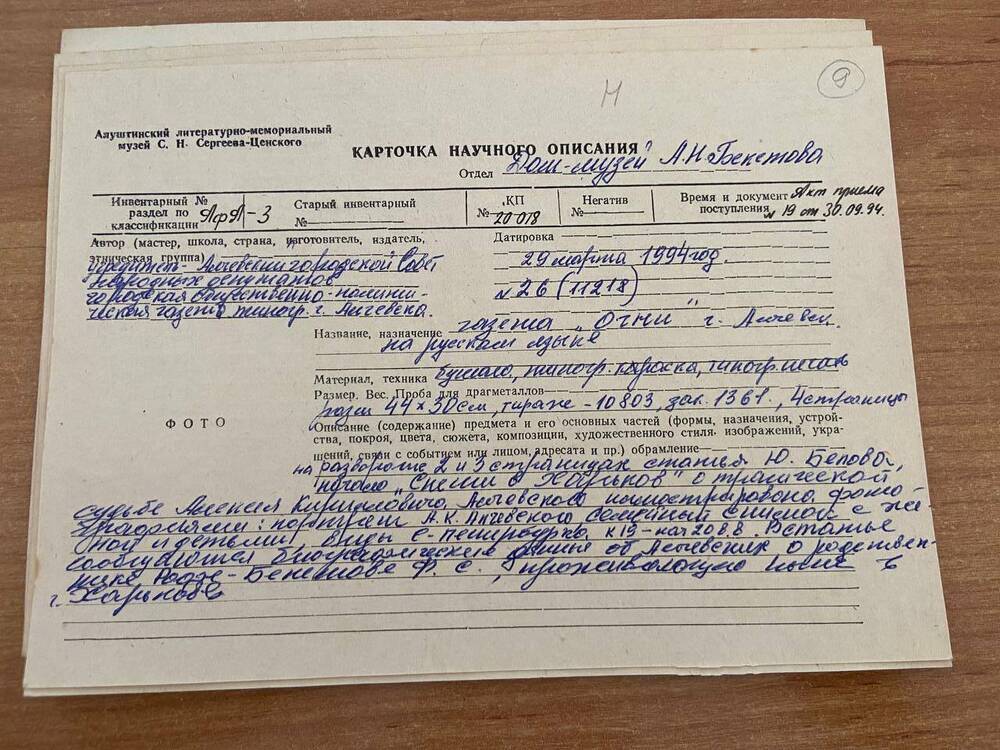 Н
9
Алуштинский литературно-мемориальный
музей С. Н. Сергеева-Ценского
КАРТОЧКА НАУЧНОГО ОПИСАНИЯ
Отдел Дом-музей А.Н. Бекетова
Инвентарный № раздел по классификации АфА-3
Старый инвентарный №
КП № 20 018
Негатив №
Время и документ поступления Акт приема № 19 от 30.09.94.
Автор (мастер, школа, страна, изготовитель, издатель,
этническая группа)
учредитель - Алчевский городской Совет
народных депутатов
городская общественно-полити-
ческая газета типогр. г. Алчевска.
Датировка
29 марта 1994 год
№ 26 (11218)
Название, назначение газета „Огни" г. Алчевск.
на русском языке
Материал, техника бумага, типогр. краска, типогр. печать
Размер. Вес. Проба для драгметаллов
разм 44×30 см, тираж - 10803, зак. 1361, 4 страницы
ФОТО
Описание (содержание) предмета и его основных частей (формы, назначения, устрой-
ства, покроя, цвета, сюжета, композиции, художественного стиля, изображений, укра-
шений, связи с событием или лицом, адресата и пр.) обрамление
на развороте 2 и 3 страницах статья Ю. Белова,
начало „ в Харьков" о трагической
судьбе Алексея Кирилловича Алчевского иллюстрирована фото
графиями: портрет А. К. Алчевского семейный снимок с же-
ной и детьми, виды С-Петербурга к 19 - нач 20 в.в. В статье
сообщаются биографические данные об Алчевских о родствен-
нике - Бекетове Ф. С., проживающую ныне в
г. Харькове